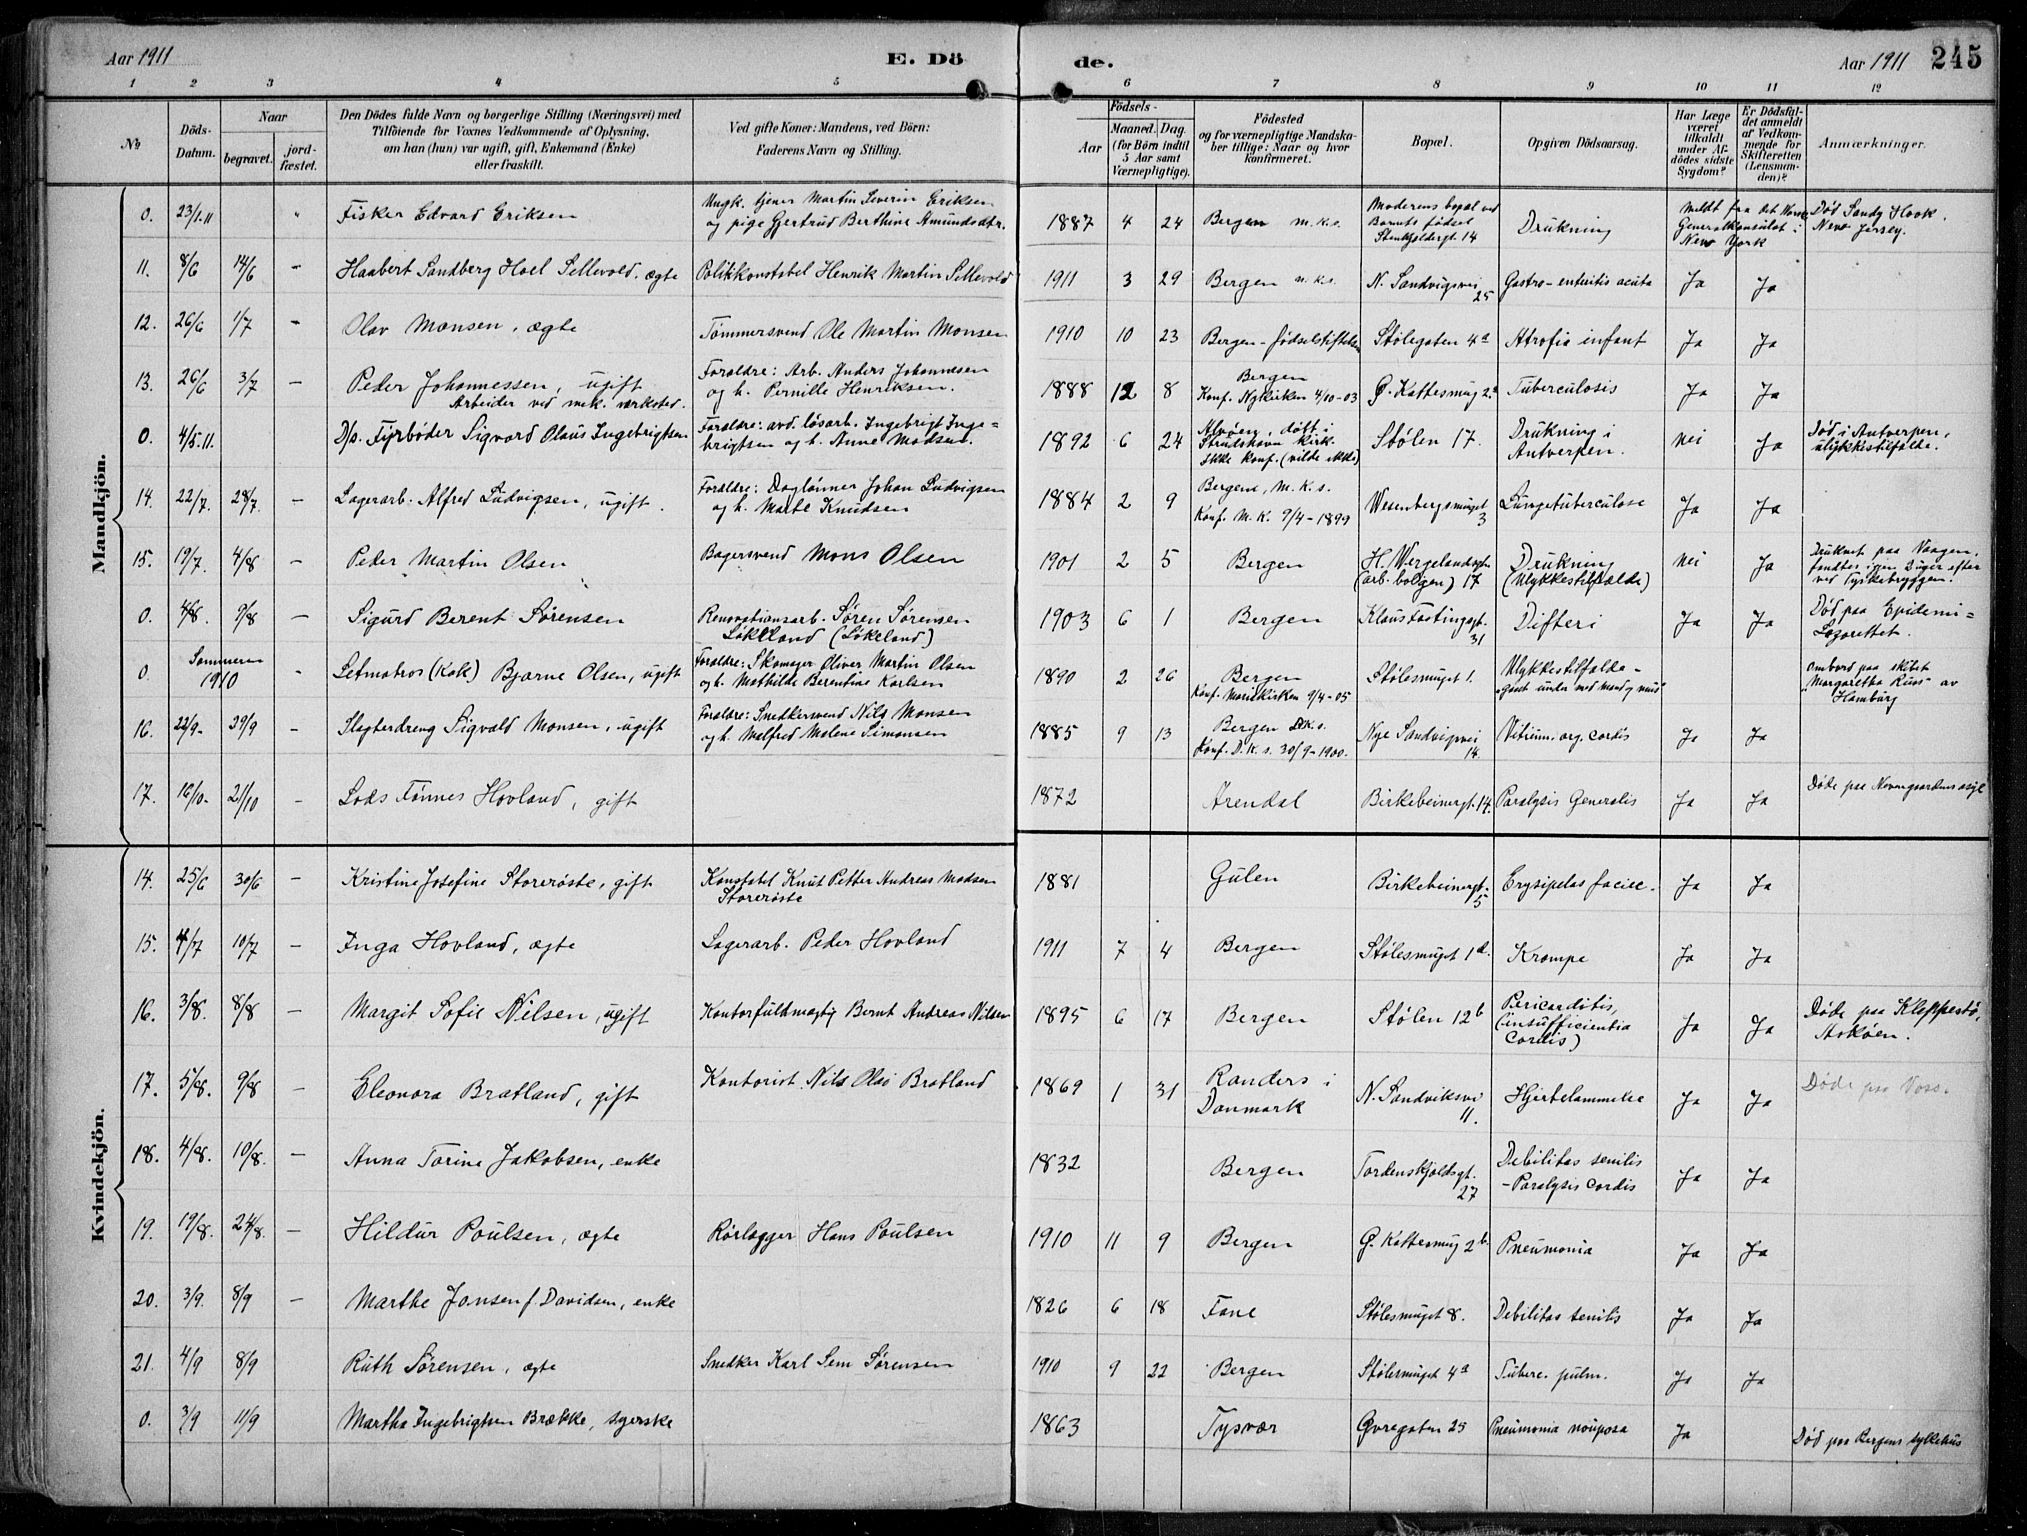 Aar 1911
E. Dö
de.
Aar 1911
245
1 2 3 4 5 6 7 8 9 10 11 12
No
Döds-
Datum.
Naar
begravet.
jord-
fæstet.
Den Dödes fulde Navn og borgerlige Stilling (Næringsvei) med
Tilföiende for Voxnes Vedkommende af Oplysning,
om han (hun) var ugift, gift, Enkemand (Enke)
eller fraskilt.
Ved gifte Koner: Mandens, ved Börn:
Faderens Navn og Stilling.
Födsels-
Aar
Maaned. Dag.
(for Börn indtil
5 Aar samt
Værnepligtige).
Födested
og for værnepligtige Mandska-
ber tillige: Naar og hvor
konfirmeret.
Bopæl.
Opgiven Dödsaarsag.
Har Læge
været
tilkaldt
under Af-
dödes sidste
Sygdom?
Er Dödsfal-
det anmeldt
af Vedkom-
mende for
Skifteretten
(Lensman-
den)?
Anmærkninger.
Mandkjön.
0. 23/1.11 " Fisker Edvard Eriksen
Ungk. tjener Martin Severin Eriksen
og pige Gjertrud Berthine Amundsdtr.
1887 4 24 Bergen m.k.s.
Moderens bopæl ved
Barnets fødsel
Stenkjeldergt. 14
Drukning
Meldt fra det Norske
Generalkonsulat i
New York
Død Sandy Hook.
New Jersey.
11. 8/6 14/6 - Haabert Sandberg Hoel Sellevold. ægte
Politikonstabel Henrik Martin Sellevold
1911 3 29 Bergen m.k.s. N. Sandvigsvei
25
Gastro-enteritis acuta Ja Ja
12. 26/6 1/7 - Olav Monsen, ægte
Tømmersvend Ole Martin Monsen
1910 10 23 Bergen-fødselstiftelsen Stølegaten 4a Atrofia infant Ja Ja
13. 26/6 3/7 - Peder Johannessen, ugift
Arbeider ved mek. værksted.
Forældre: Arb. Anders Johannesen
og h. Pernille Henriksen.
1888 12 8 Bergen
Konf. Nykirken 4/10-03
Ø. Kattesmug 2a Tuberculosis Ja Ja
0. 4/5.11. D/s. Fyrbøder Sigvard Olaus Ingebrigtsen
Forældre: avd. løsarb. Ingebrigt Inge-
brigtsen og h. Anne Madsen.
1892 6 24 Alvøen, døbt i
Strudshavn kirk.
Ikke konf. (vilde ikke)
Stølen 17. Drukning i
Antverpen.
nei Ja
Død i Antverpen,
ulykkestilfælde.
14. 22/7. 28/7. - Lagerarb. Alfred Ludvigsen, ugift.
Forældre: Daglønner Johan Ludvigsen
og h. Marte Knudsen
1884 2 9 Bergen, M.K.s.
Konf. M.K. 9/4-1899
Wesenbergsmuget
3
Lungetuberculose Ja Ja
15. 19/7. 4/8 - Peder Martin Olsen
Bagersvend Mons Olsen
1901 2 5 Bergen H. Wergelandsgt.
(arb. bolgen) 17
Drukning
(Ulykkestilfælde)
nei Ja
Druknet paa Vaagen.
fandtes igen 2 uger efter
ved Tyskebryggen.
0. 4/8. 9/8 - Sigurd Berent Sørensen
Renovationsarb. Søren Sørensen
Løkeland (Løkeland)
1903 6 1 Bergen Klaus Fastingsgt.
31
Difteri Ja Ja
Død paa Epidemi-
Lazarettet.
0. Sommeren
1910
- Letmatros (Kok) Bjarne Olsen, ugift
Forældre: Skomager Oliver Martin Olsen
og h. Mathilde Berentine Karlsen
1890 2 26 Bergen
Konf. Mariekirken 9/4-05
Stølesmuget 1. Ulykkestilfælde-
gaat under med mand og mus
ombord paa skibet
"Margaretha Russ" av
Hamburg
16. 22/9- 29/9 - Slagterdreng Sigvald Monsen, ugift
Forældre: Snedkersvend Nils Monsen
og h. Malfred Malene Simonsen
1885 9 13 Bergen D.K.s.
Konf. D.K.s. 30/9-1900.
Nye Sandvigsvei
14.
Vitium org. cordis Ja Ja
17. 16/10- 21/10 - Lods Tønnes Hovland, gift
1872 Arendal Birkebeinergt. 14. Paralysis Generalis Ja Ja
Døde paa Nevengaardens asyl
Kvindekjön.
14. 25/6 30/6 - Kristine Josefine Storerøste, gift
Konstabel Knut Petter Andreas Madsen
Storerøste
1881 Gulen Birkebeinergt.
5
Erysipelas faciei. Ja Ja
15. 4/7 10/7 - Inga Hovland, ægte
Lagerarb. Peder Hovland
1911 7 4 Bergen Stølesmuget 1d. Krampe Ja Ja
16. 3/8. 8/8 - Margit Sofie Nilsen, ugift
Kontorfuldmægtig Bernt Andreas Nilsen
1895 6 17 Bergen Stølen 12b Pericarditis,
(insufficientia
cordis)
Ja Ja
Døde paa Kleppestø,
Askøen.
17. 5/8. 9/8 - Eleonora Bratland, gift
Kontorist Nils Olai Bratland
1869 1 31 Randers i
Danmark
N. Sandviksvei
11.
Hjertelammelse Ja Ja
Døde paa Voss.
18. 4/8. 10/8. - Anna Torine Jakobsen, enke
1832 Bergen Tordenskjoldsgt.
27
Debilitas senilis
-Paralysis cordis
Ja Ja
19. 19/8. 24/8. - Hildur Poulsen, ægte
Rørlægger Hans Poulsen
1910 11 9 Bergen Ø. Kattesmug 2b. Pneumonia Ja Ja
20. 3/9. 8/9 - Marthe Jansen f. Davidsen, enke
1826 6 18 Fane Stølesmuget 8. Debilitas senilis Ja Ja
21. 4/9 8/9 Ruth Sørensen, ægte
Snedker Karl Sem Sørensen
1910 9 22 Bergen Stølesmuget 4a Tuberc. pulm. Ja Ja
0. 3/9 11/9 Martha Ingebrigtsen Brække, syerske
1863 Tysvær Øvregaten 25 Pneumonia Ja
Død paa Bergens sykehus